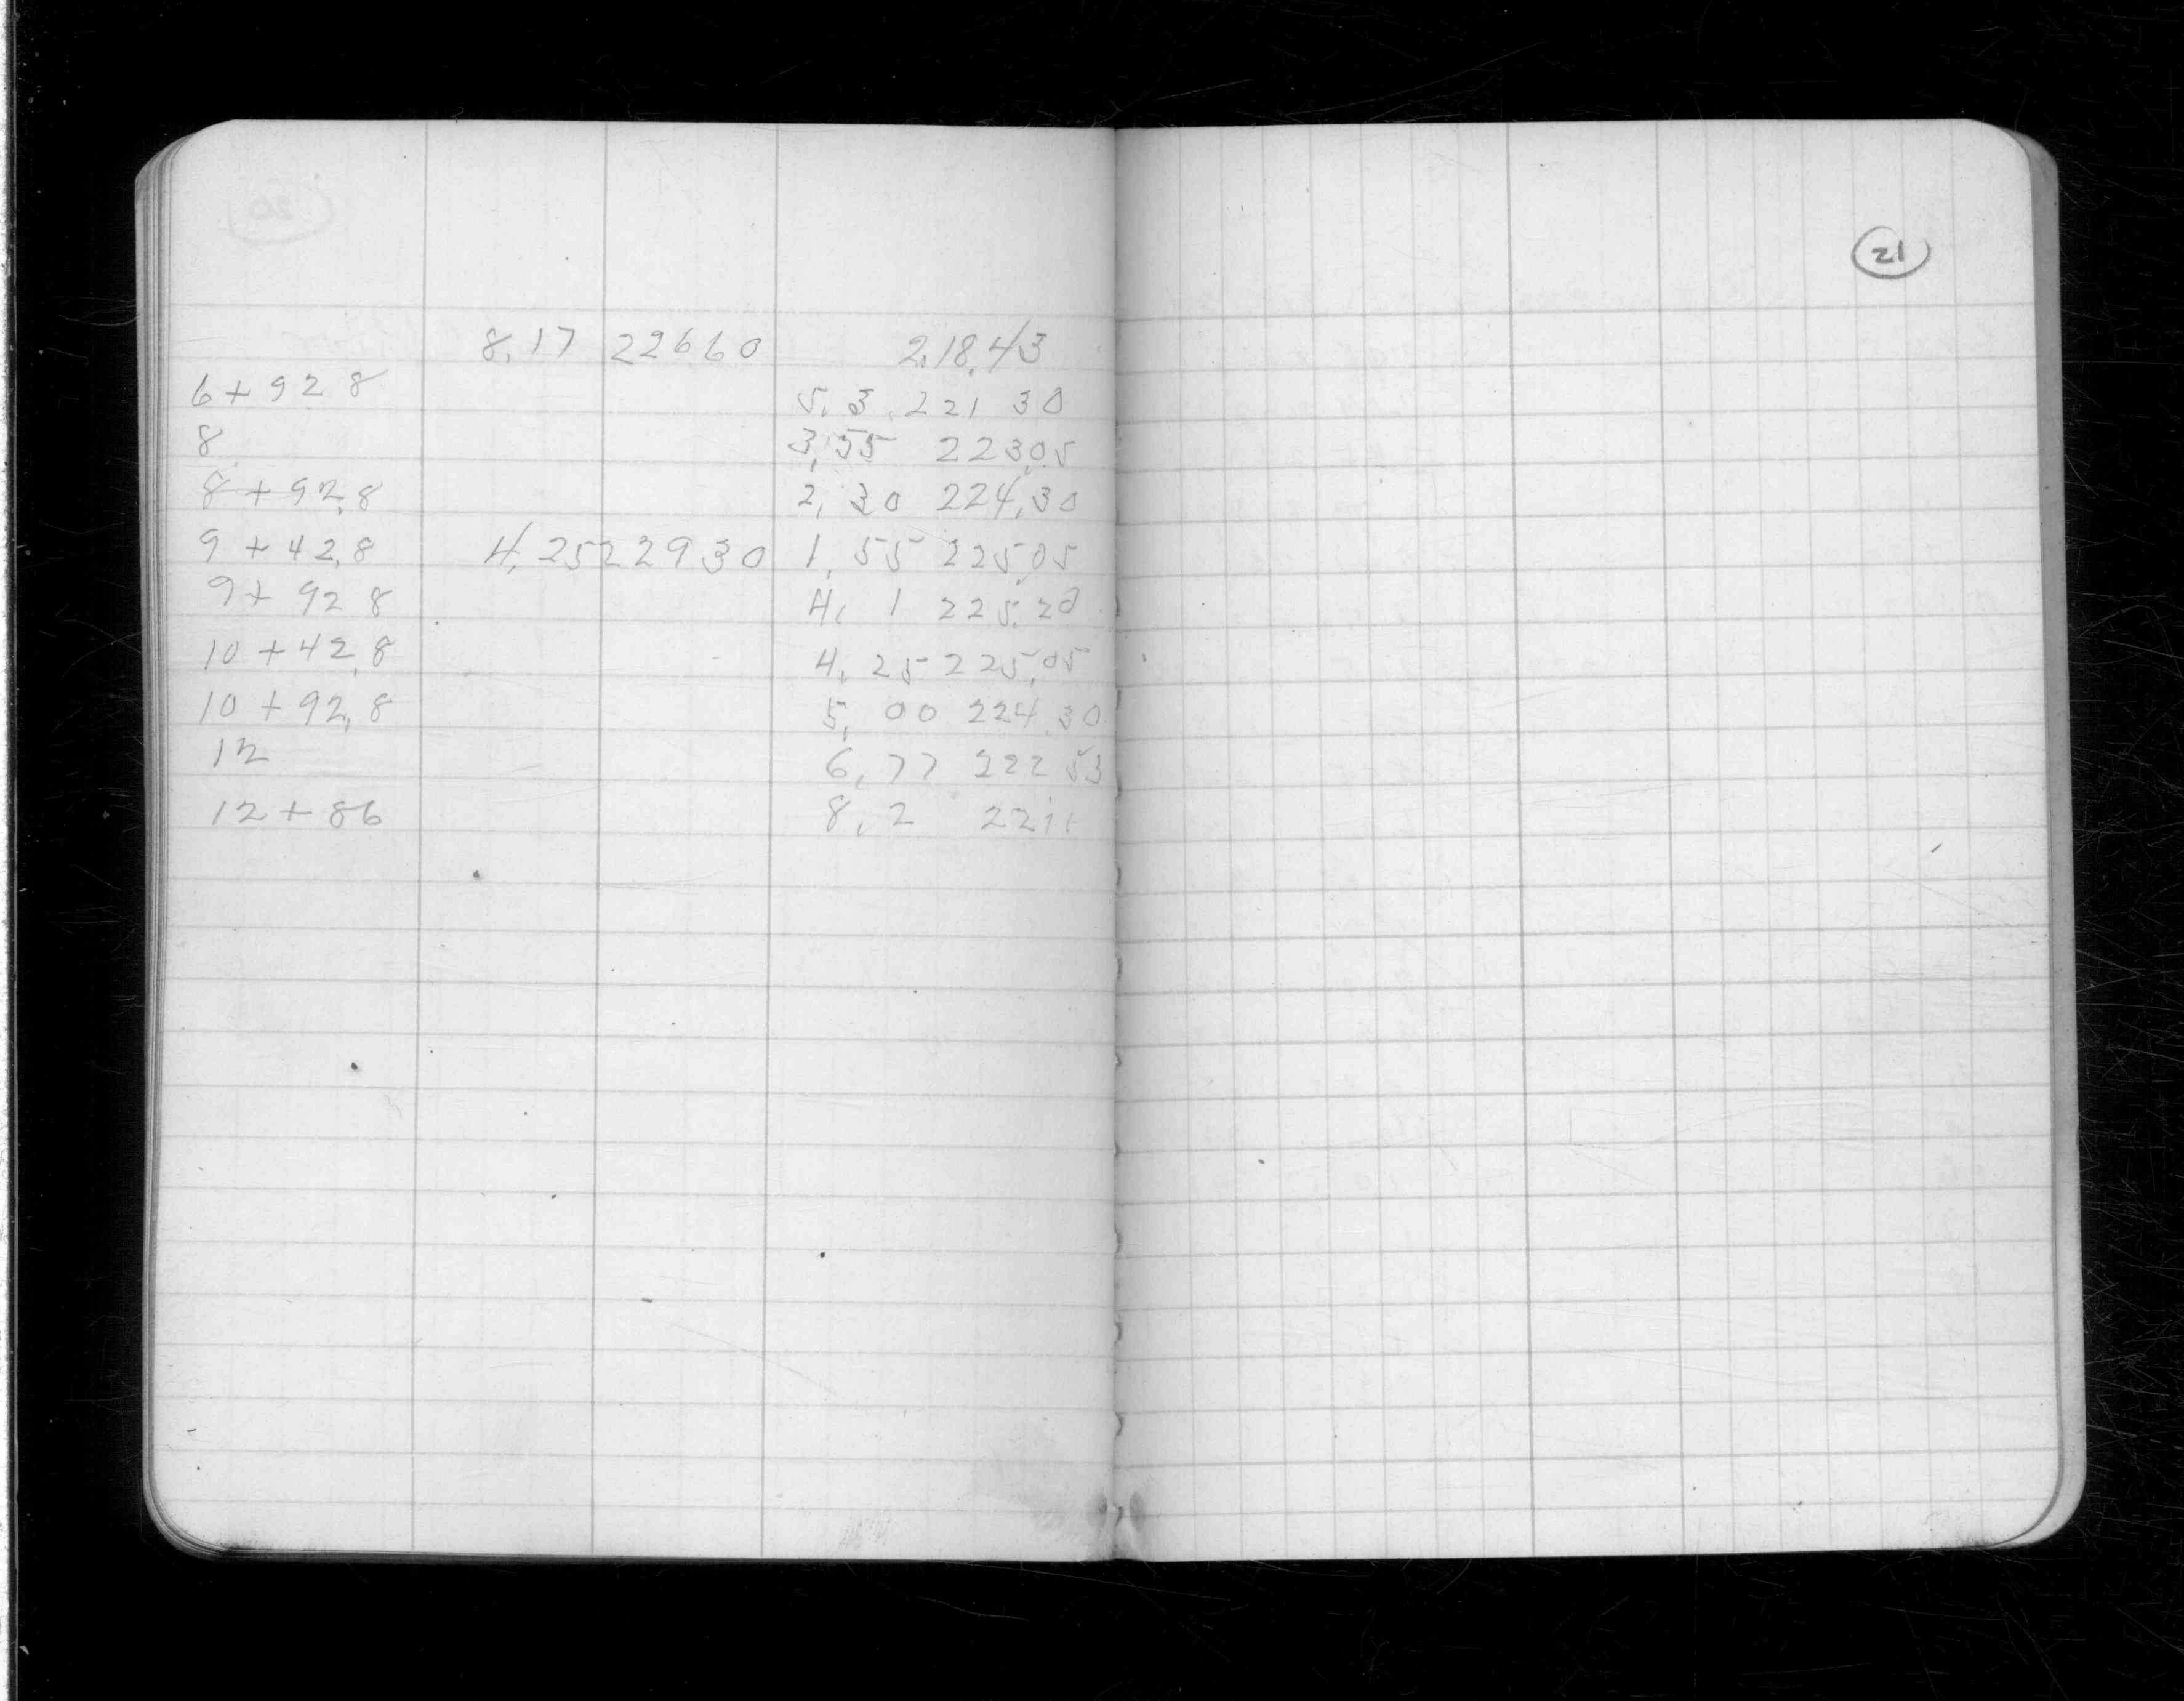 8.17 22660 2.18.43
6+92 8 5.3 221 30
8 3.55 223.05
8+92.8 2.30 224.30
9+42.8 4.25 22930 1.55 225.05
9+92 8 4. 1 225.20
10+42.8 4.25 225.05
10+92.8 5.00 224.30
12 6.77 222 53
12+86 8.2
21